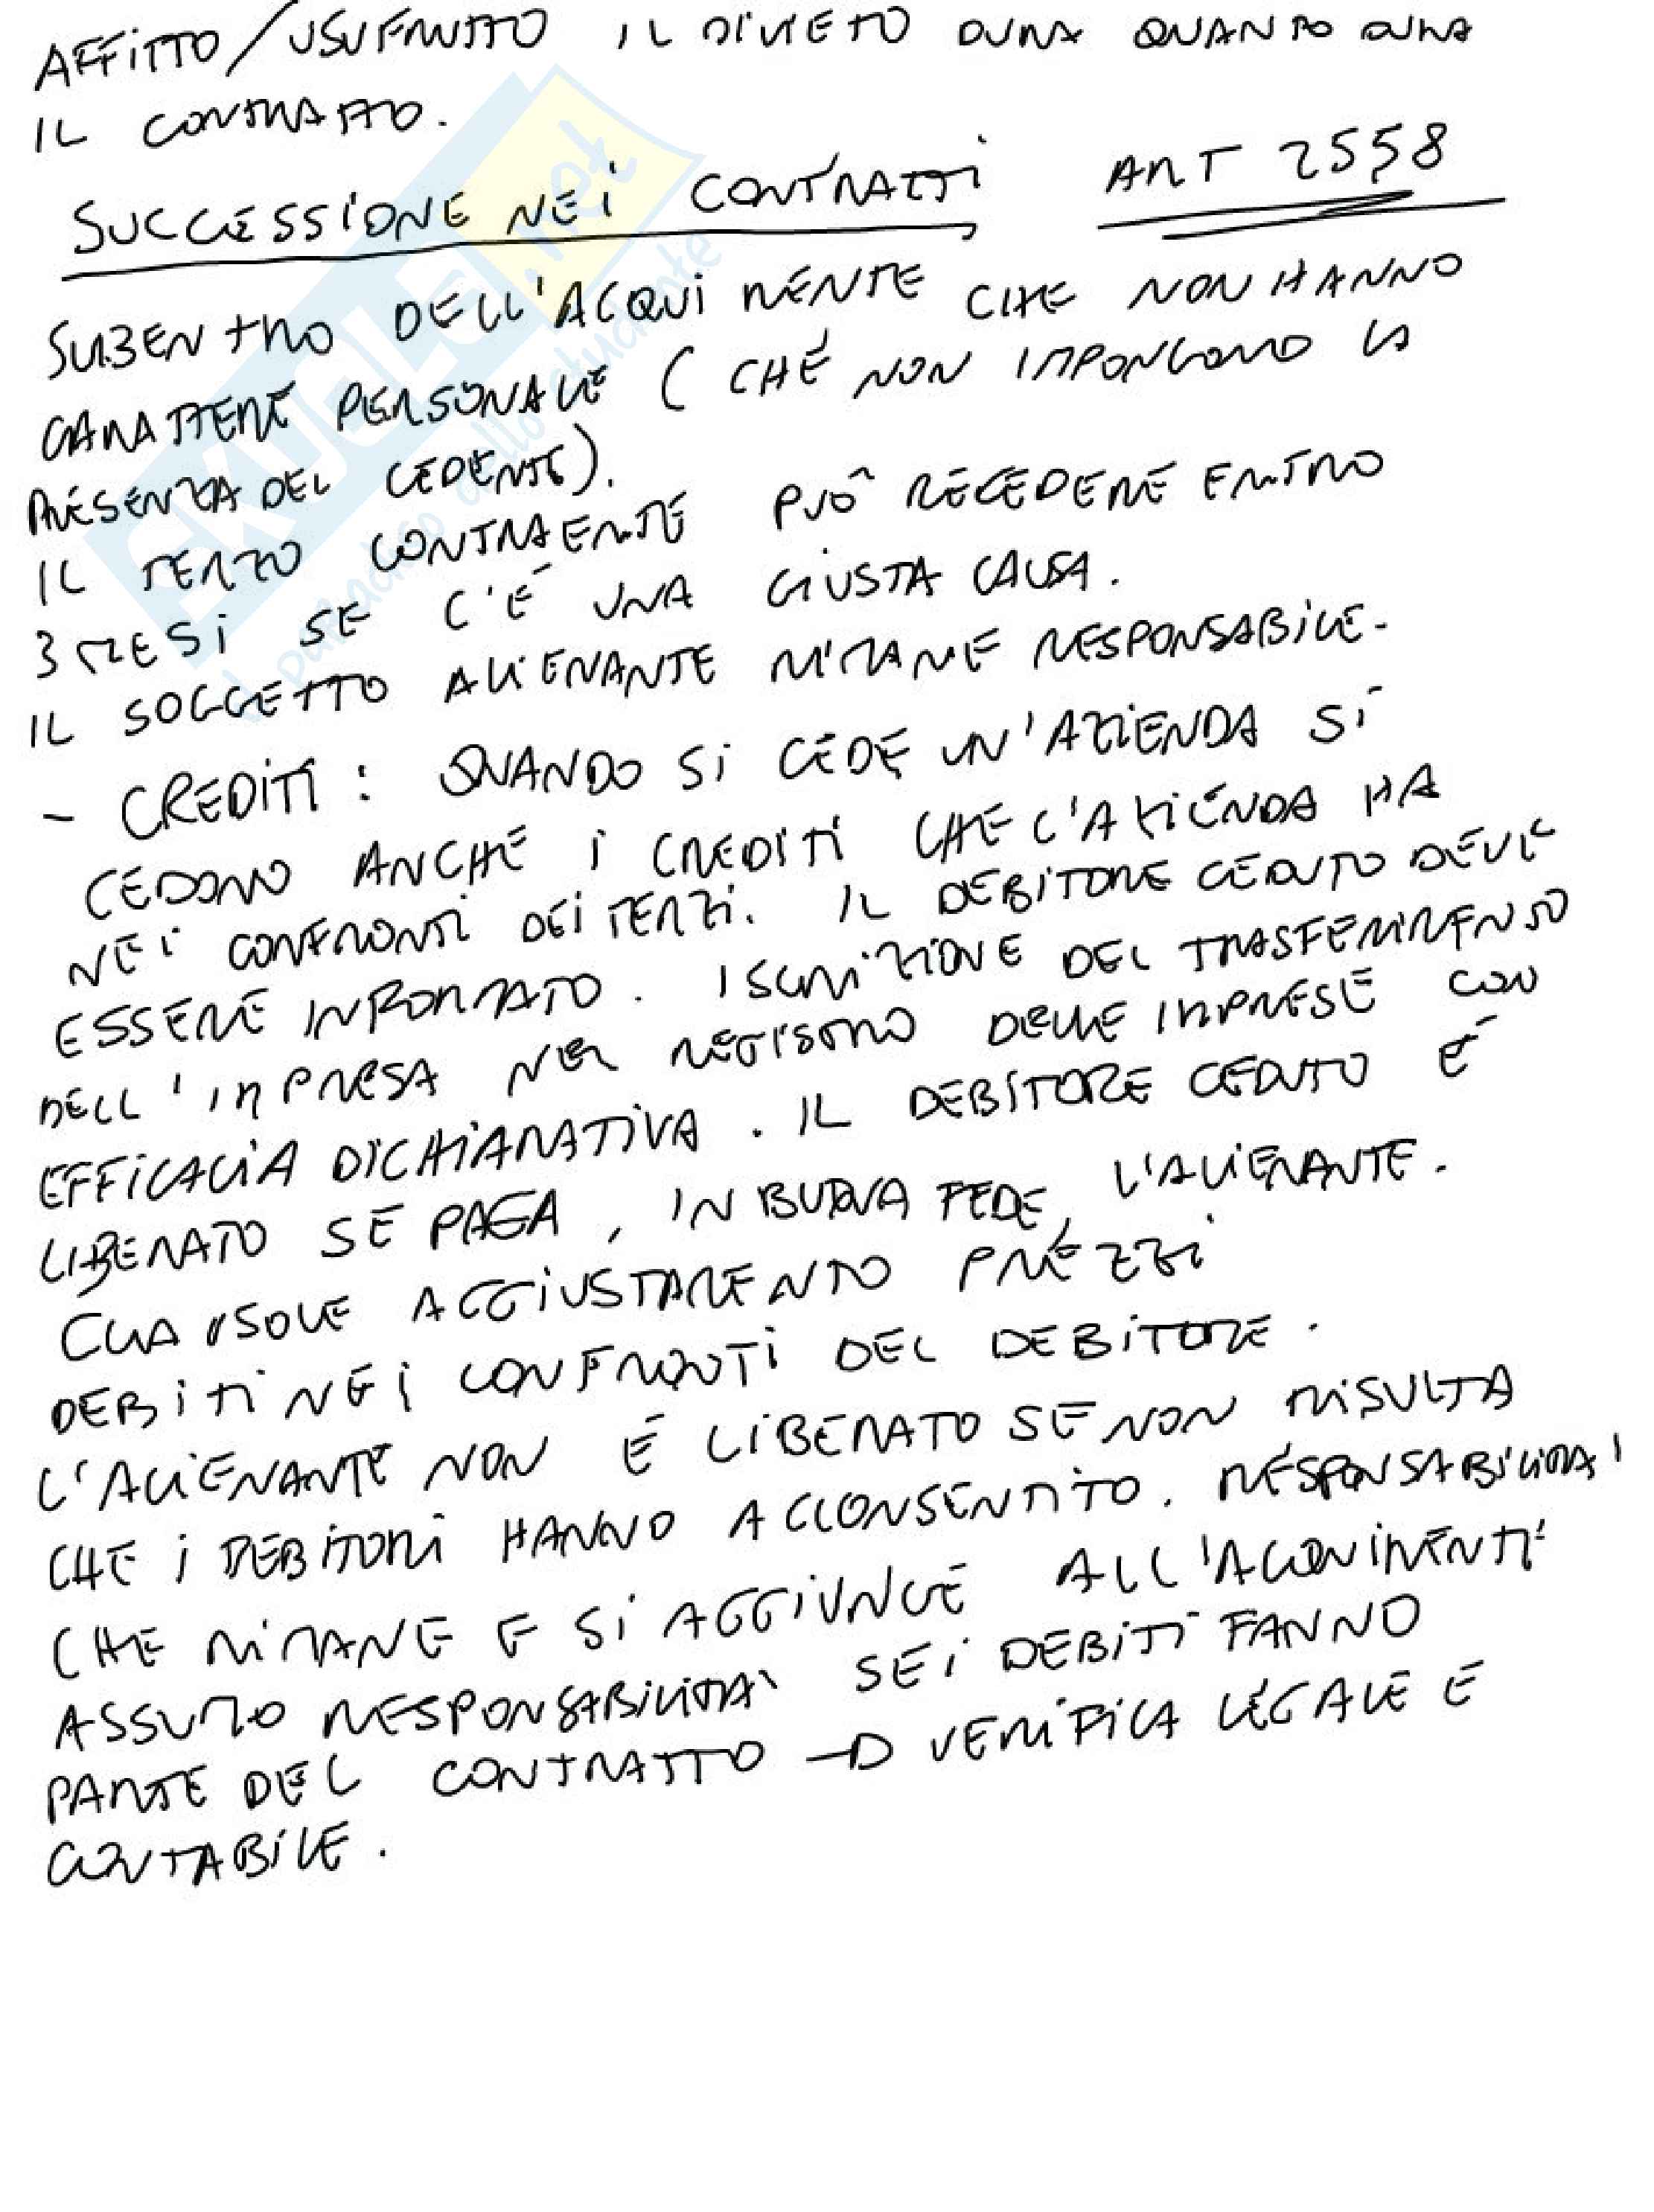 AFFITTO/USUFRUTTO IL DIVIETO DURA QUANTO DURA
IL CONTRATTO.
SUCCESSIONE NEI CONTRATTI ART 2558
SUBENTRO DELL'ACQUIRENTE CHE NON HANNO
CARATTERE PERSONALE (CHE NON IMPONGONO LA
PRESENZA DEL CEDENTE).
IL TERZO CONTRAENTE PUÒ RECEDERE ENTRO
3 MESI SE C'È UNA GIUSTA CAUSA.
IL SOGGETTO ALIENANTE RIMANE RESPONSABILE.
- CREDITI: QUANDO SI CEDE UN'AZIENDA SI
CEDONO ANCHE I CREDITI CHE L'AZIENDA HA
NEI CONFRONTI DEI TERZI. IL DEBITORE CEDUTO DEVE
ESSERE INFORMATO. ISCRIZIONE DEL TRASFERIMENTO
DELL'IMPRESA NEL REGISTRO DELLE IMPRESE CON
EFFICACIA DICHIARATIVA. IL DEBITORE CEDUTO È
LIBERATO SE PAGA, IN BUONA FEDE, L'ALIENANTE.
CLAUSOLE AGGIUSTAMENTO PREZZI
DEBITI NEI CONFRONTI DEL DEBITORE.
L'ALIENANTE NON È LIBERATO SE NON RISULTA
CHE I DEBITORI HANNO ACCONSENTITO. RESPONSABILITA'
CHE RIMANE E SI AGGIUNGE ALL'ACQUIRENTE
ASSUMO RESPONSABILITÀ SE I DEBITI FANNO
PARTE DEL CONTRATTO → VERIFICA LEGALE E
CONTABILE.
SKUOLA.net
il paradiso dello studente